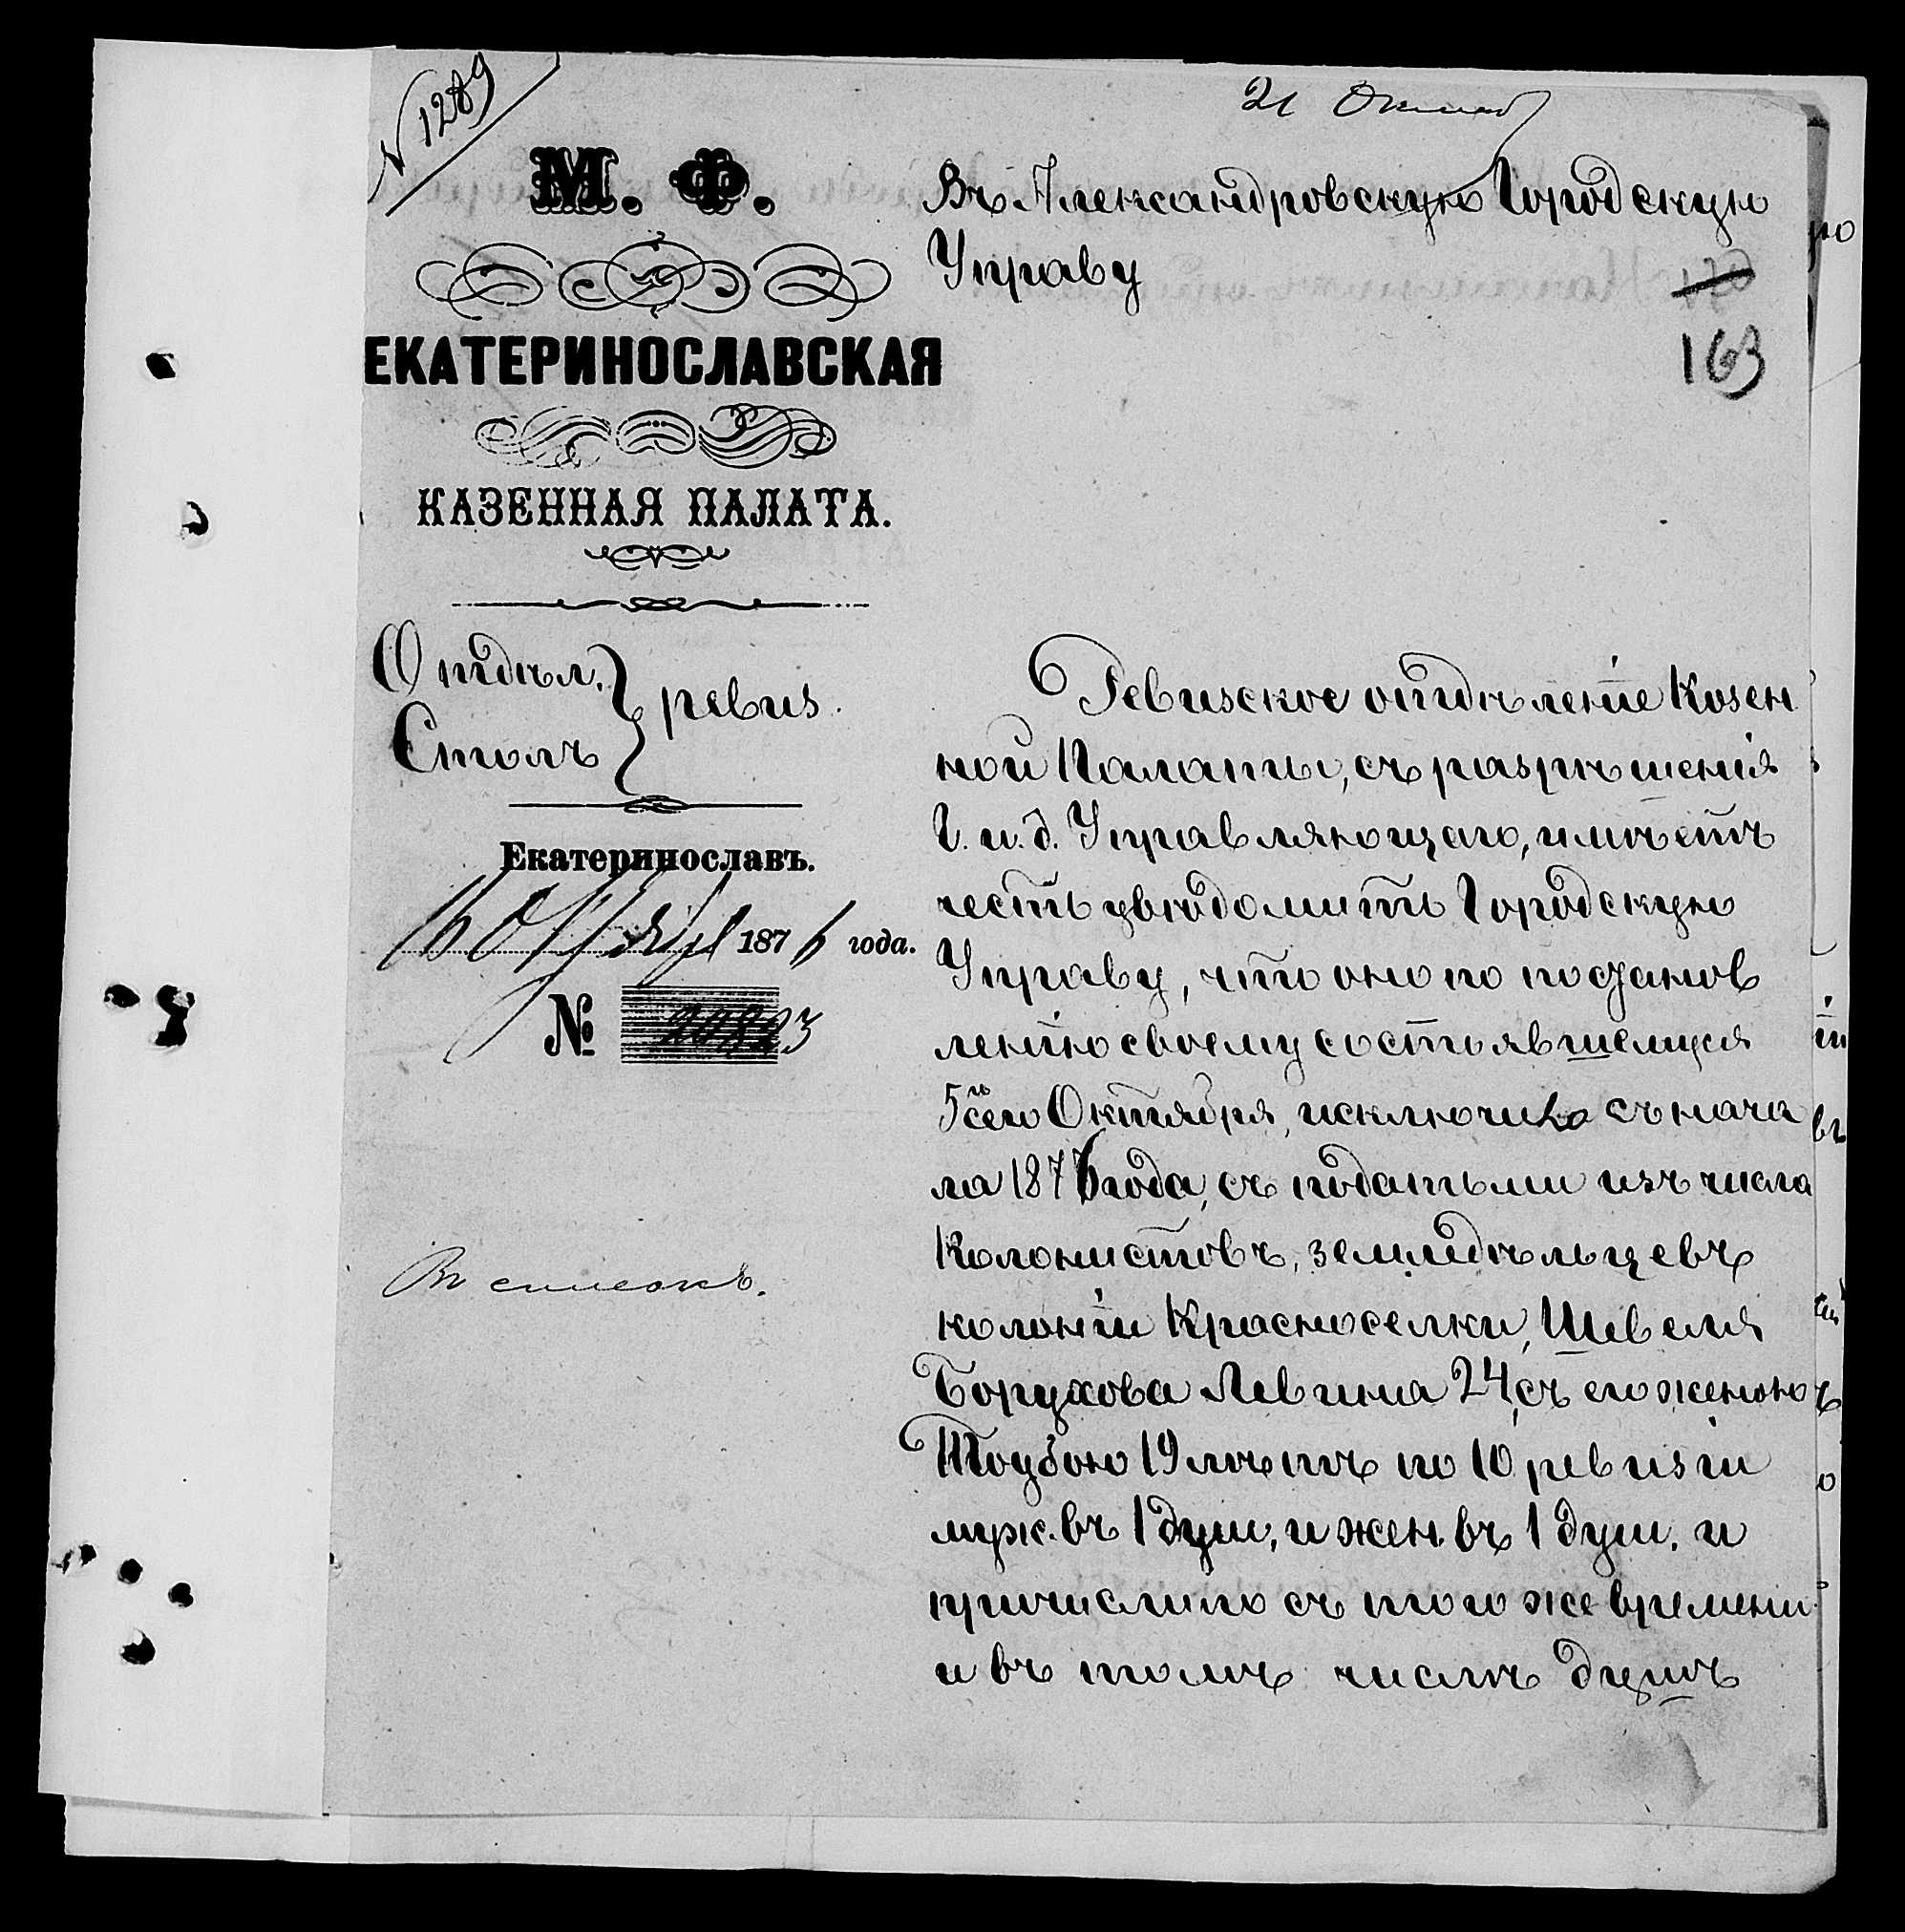 N 1289
21 Октяб
М. Ф.
ЕКАТЕРИНОСЛАВСКАЯ
КАЗЕННАЯ ПАЛАТА.
Отдѣл.
Столъ
ревиз.
Екатеринославъ.
16 Октября 1876 года.
№ 20823
Въ списокъ.
Въ Александровскую Городскую
Управу
163
Ревизское отдѣленіе Козен
ной Палаты, съ разрѣшенія
Г. и. д. Управляющаго, имѣетъ
честь увѣдомить Городскую
Управу, что оно по постанов
ленію своему состоявшемуся
5 сего Октября, исключило съ нача
ла 1876 года, съ податьми изъ числа
Колонистовъ, земледѣльцевъ
колоніи Красноселки, Шевеля
Борухова Левина 24, съ его женою
Тоубою 19 лѣтъ по 10 ревизіи
муж. въ 1 душ, и жен. въ 1 душ. и
причислило съ того же времени
и въ томъ числѣ душъ